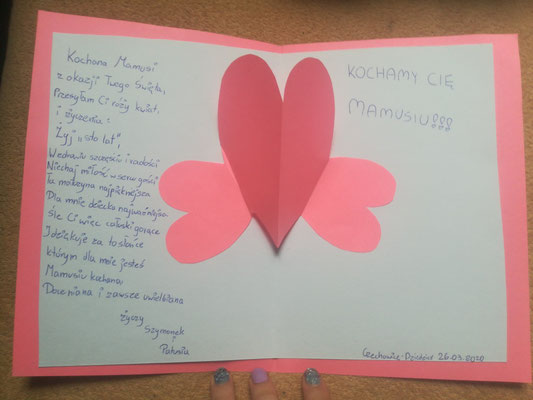 Kochana Mamusi
z okazji Twego Święta,
Przesyłam Ci róży kwiat,
i życzenia:
Żyj „sto lat",
W zdrowiu szczęściu i radości
Niechaj miłość w sercu gości
Ta matczyna najpiękniejsza
Dla mnie dziecka najważniejsza
Śle Ci więc całuski gorące
I dziękuję za to słońce
którym dla mnie jesteś
Mamuniu kochana
Doceniana i zawsze uwielbiana
życzy
Szymonek
KOCHAMY CIĘ
MAMUSIU!!!
Czechowice-Dziedzice 26.05.2020